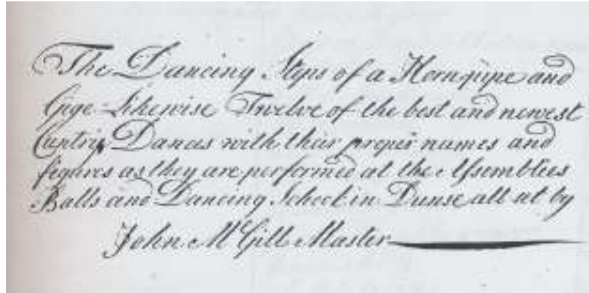 The Dancing Steps of a Hornpipe and
Gige Likewise Twelve of the best and newest
Cuntrip Dances with their proper names and
figures as they are performed at the Assemblies
Balls and Dancing School in Dunse all set by
John McGill Master